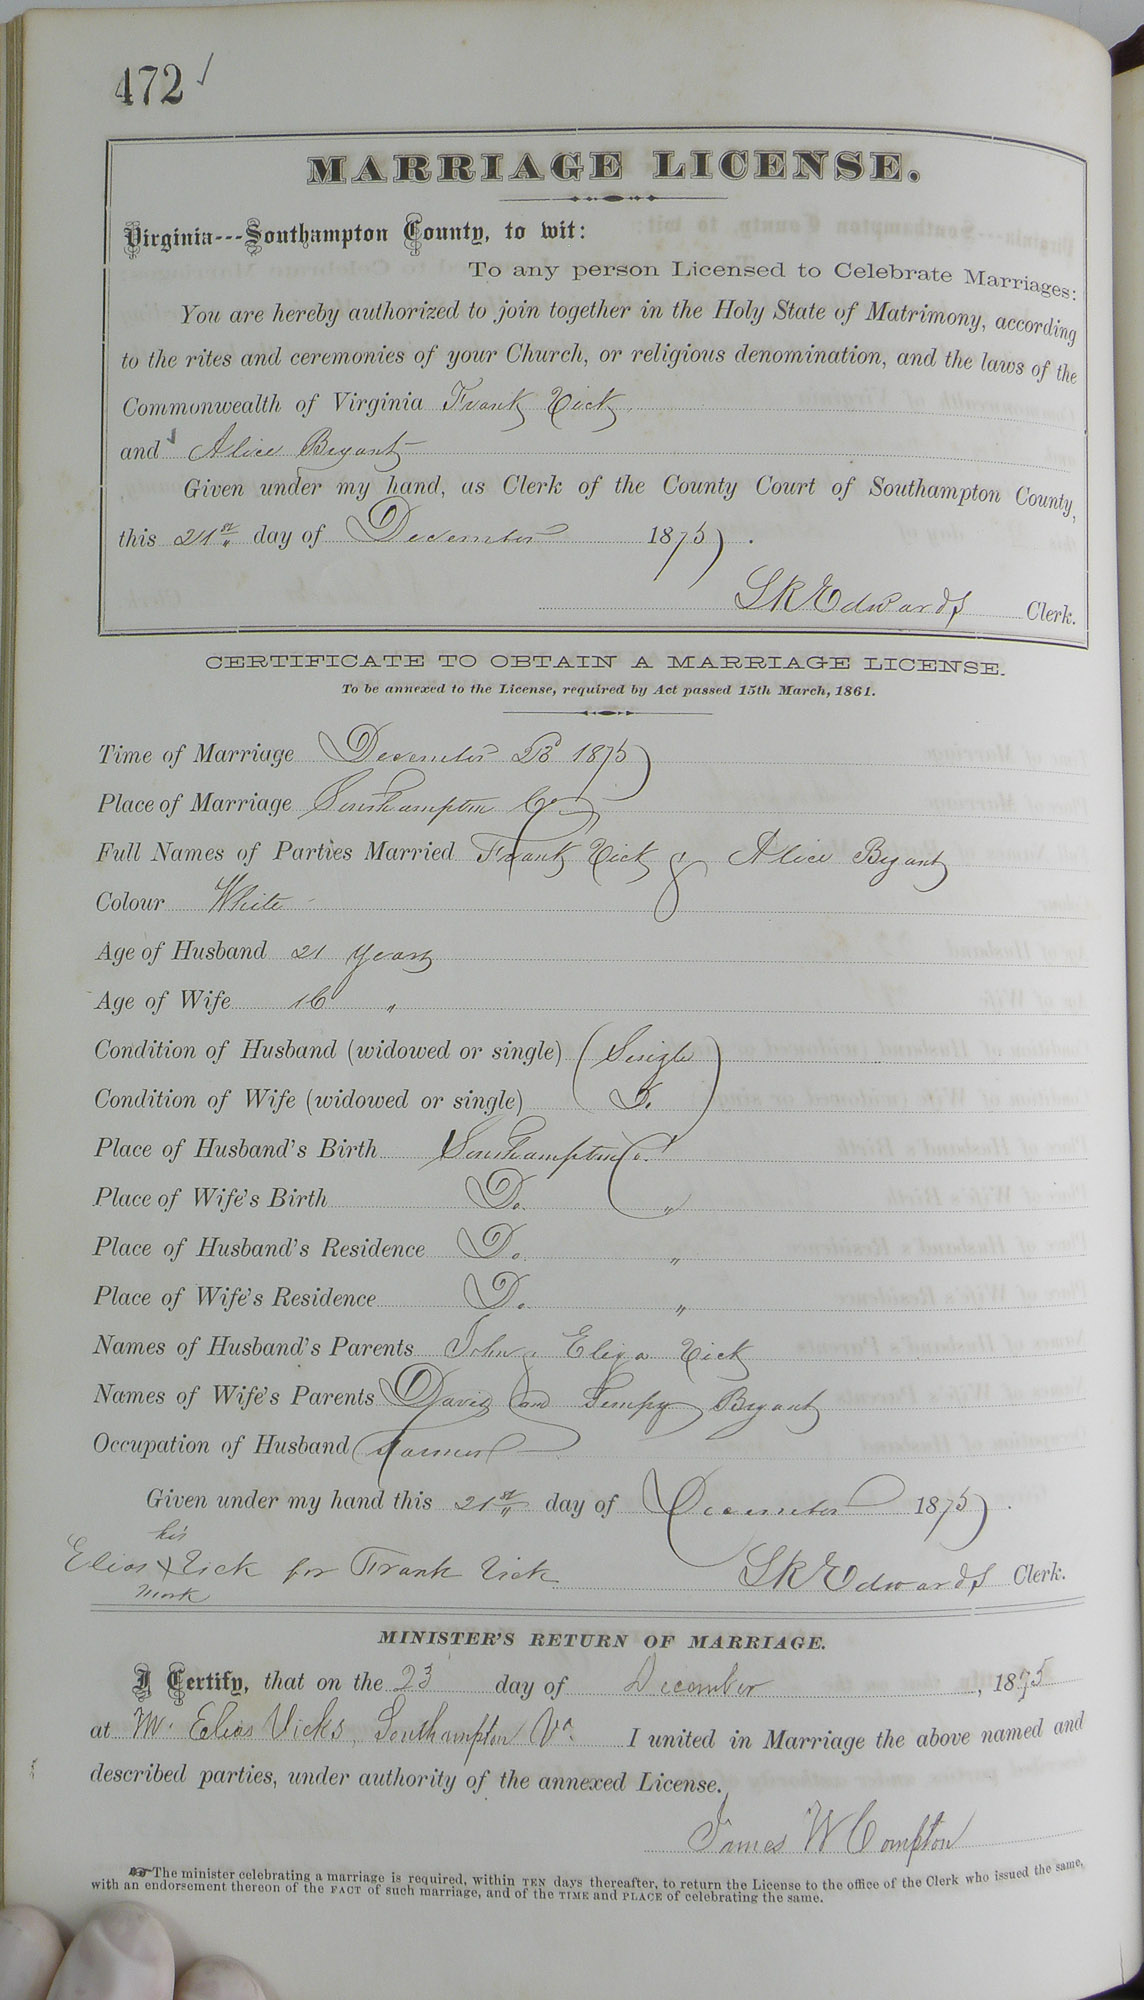 472 ✓
MARRIAGE LICENSE.
Virginia---Southampton County, to wit:
To any person Licensed to Celebrate Marriages:
You are hereby authorized to join together in the Holy State of Matrimony, according
to the rites and ceremonies of your Church, or religious denomination, and the laws of the
Commonwealth of Virginia Frank Vick
and ✓ Alice Bryant
Given under my hand, as Clerk of the County Court of Southampton County,
this 21st day of December 1875.
L R Edwards Clerk.
CERTIFICATE TO OBTAIN A MARRIAGE LICENSE.
To be annexed to the License, required by Act passed 15th March, 1861.
Time of Marriage December 23 1875
Place of Marriage Southampton Co
Full Names of Parties Married Frank Vick & Alice Bryant
Colour White
Age of Husband 21 years
Age of Wife 16 "
Condition of Husband (widowed or single) (Single)
Condition of Wife (widowed or single) Do.
Place of Husband's Birth Southampton Co.
Place of Wife's Birth Do. "
Place of Husband's Residence Do. "
Place of Wife's Residence Do. "
Names of Husband's Parents John & Eliza Vick
Names of Wife's Parents David and Tempy Bryant
Occupation of Husband Farmer
Given under my hand this 21st day of December 1875.
his
Elias X Vick for Frank Vick L R Edwards Clerk.
mark
MINISTER'S RETURN OF MARRIAGE.
I Certify, that on the 23 day of December, 1875
at Mr. Elias Vicks, Southampton Va. I united in Marriage the above named and
described parties, under authority of the annexed License.
James W Compton
☞ The minister celebrating a marriage is required, within TEN days thereafter, to return the License to the office of the Clerk who issued the same,
with an endorsement thereon of the FACT of such marriage, and of the TIME and PLACE of celebrating the same.